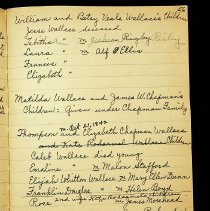 56
William and Betsy Veals Wallace's Children
Jesse Wallace deceased
Tabitha " m Rigby
Laura " m Alf Ellis
Francis "
Elizabeth "
Matilda Wallace and James W. Chapman's
Children: Given under Chapman Family
m. Oct 21, 1842
Thompson and Elizabeth Chapman Wallace
and Children
Caleb Wallace died young
Caroline " m Mahon Stafford
Elijah Whitton Wallace m Mary Ellen Bevan
Franklin Douglas " m Helen Boyd
Rose " m James Morehead